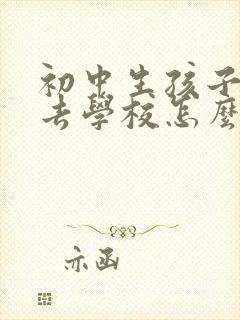 初中生孩子
去學校怎麼
亦函